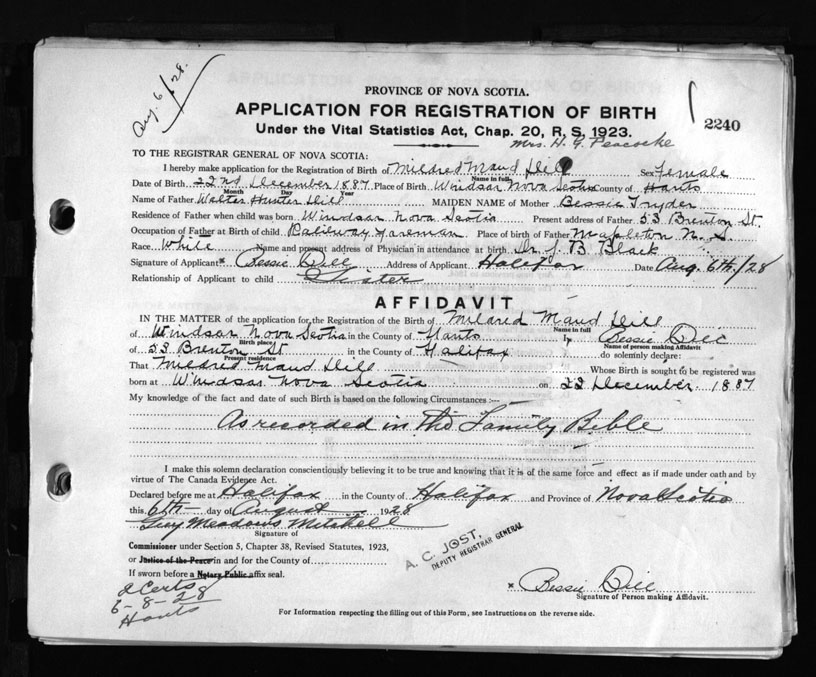 Aug. 6/28.
PROVINCE OF NOVA SCOTIA.
APPLICATION FOR REGISTRATION OF BIRTH
2240
Under the Vital Statistics Act, Chap. 20, R. S. 1923.
Mrs. H. Y. Peacocke
TO THE REGISTRAR GENERAL OF NOVA SCOTIA:
I hereby make application for the Registration of Birth of Mildred Maud Dill Sex Female
Name in full
Date of Birth 22nd December 1887 Place of Birth Windsor Nova Scotia County of Hants
Month Day Year
Name of Father Walter Hunter Dill MAIDEN NAME of Mother Bessie Tryder
Residence of Father when child was born Windsor Nova Scotia Present address of Father 53 Brenton St.
Occupation of Father at Birth of child Railway Foreman Place of birth of Father Mapleton N. S.
Race White Name and present address of Physician in attendance at birth Dr. J. B. Black
Signature of Applicant Bessie Dill Address of Applicant Halifax Date Aug. 6th/28
Relationship of Applicant to child Sister
AFFIDAVIT
IN THE MATTER of the application for the Registration of the Birth of Mildred Maud Dill
Name in full
of Windsor Nova Scotia in the County of Hants I, Bessie Dill
Birth place Name of person making Affidavit
of 53 Brenton St in the County of Halifax do solemnly declare:
Present residence
That Mildred Maud Dill Whose Birth is sought to be registered was
born at Windsor Nova Scotia on 22 December 1887
My knowledge of the fact and date of such Birth is based on the following Circumstances:—
As recorded in the Family Bible
I make this solemn declaration conscientiously believing it to be true and knowing that it is of the same force and effect as if made under oath and by
virtue of The Canada Evidence Act.
Declared before me at Halifax in the County of Halifax and Province of Nova Scotia
this 6th day of August 1928
Guy Meadows Mitchell
Signature of
Commissioner under Section 5, Chapter 38, Revised Statutes, 1923,
or Justice of the Peace in and for the County of
If sworn before a Notary Public affix seal.
A. C. JOST,
DEPUTY REGISTRAR GENERAL
2 Certs
6-8-28
Hants
Bessie Dill
Signature of Person making Affidavit.
For Information respecting the filling out of this Form, see Instructions on the reverse side.